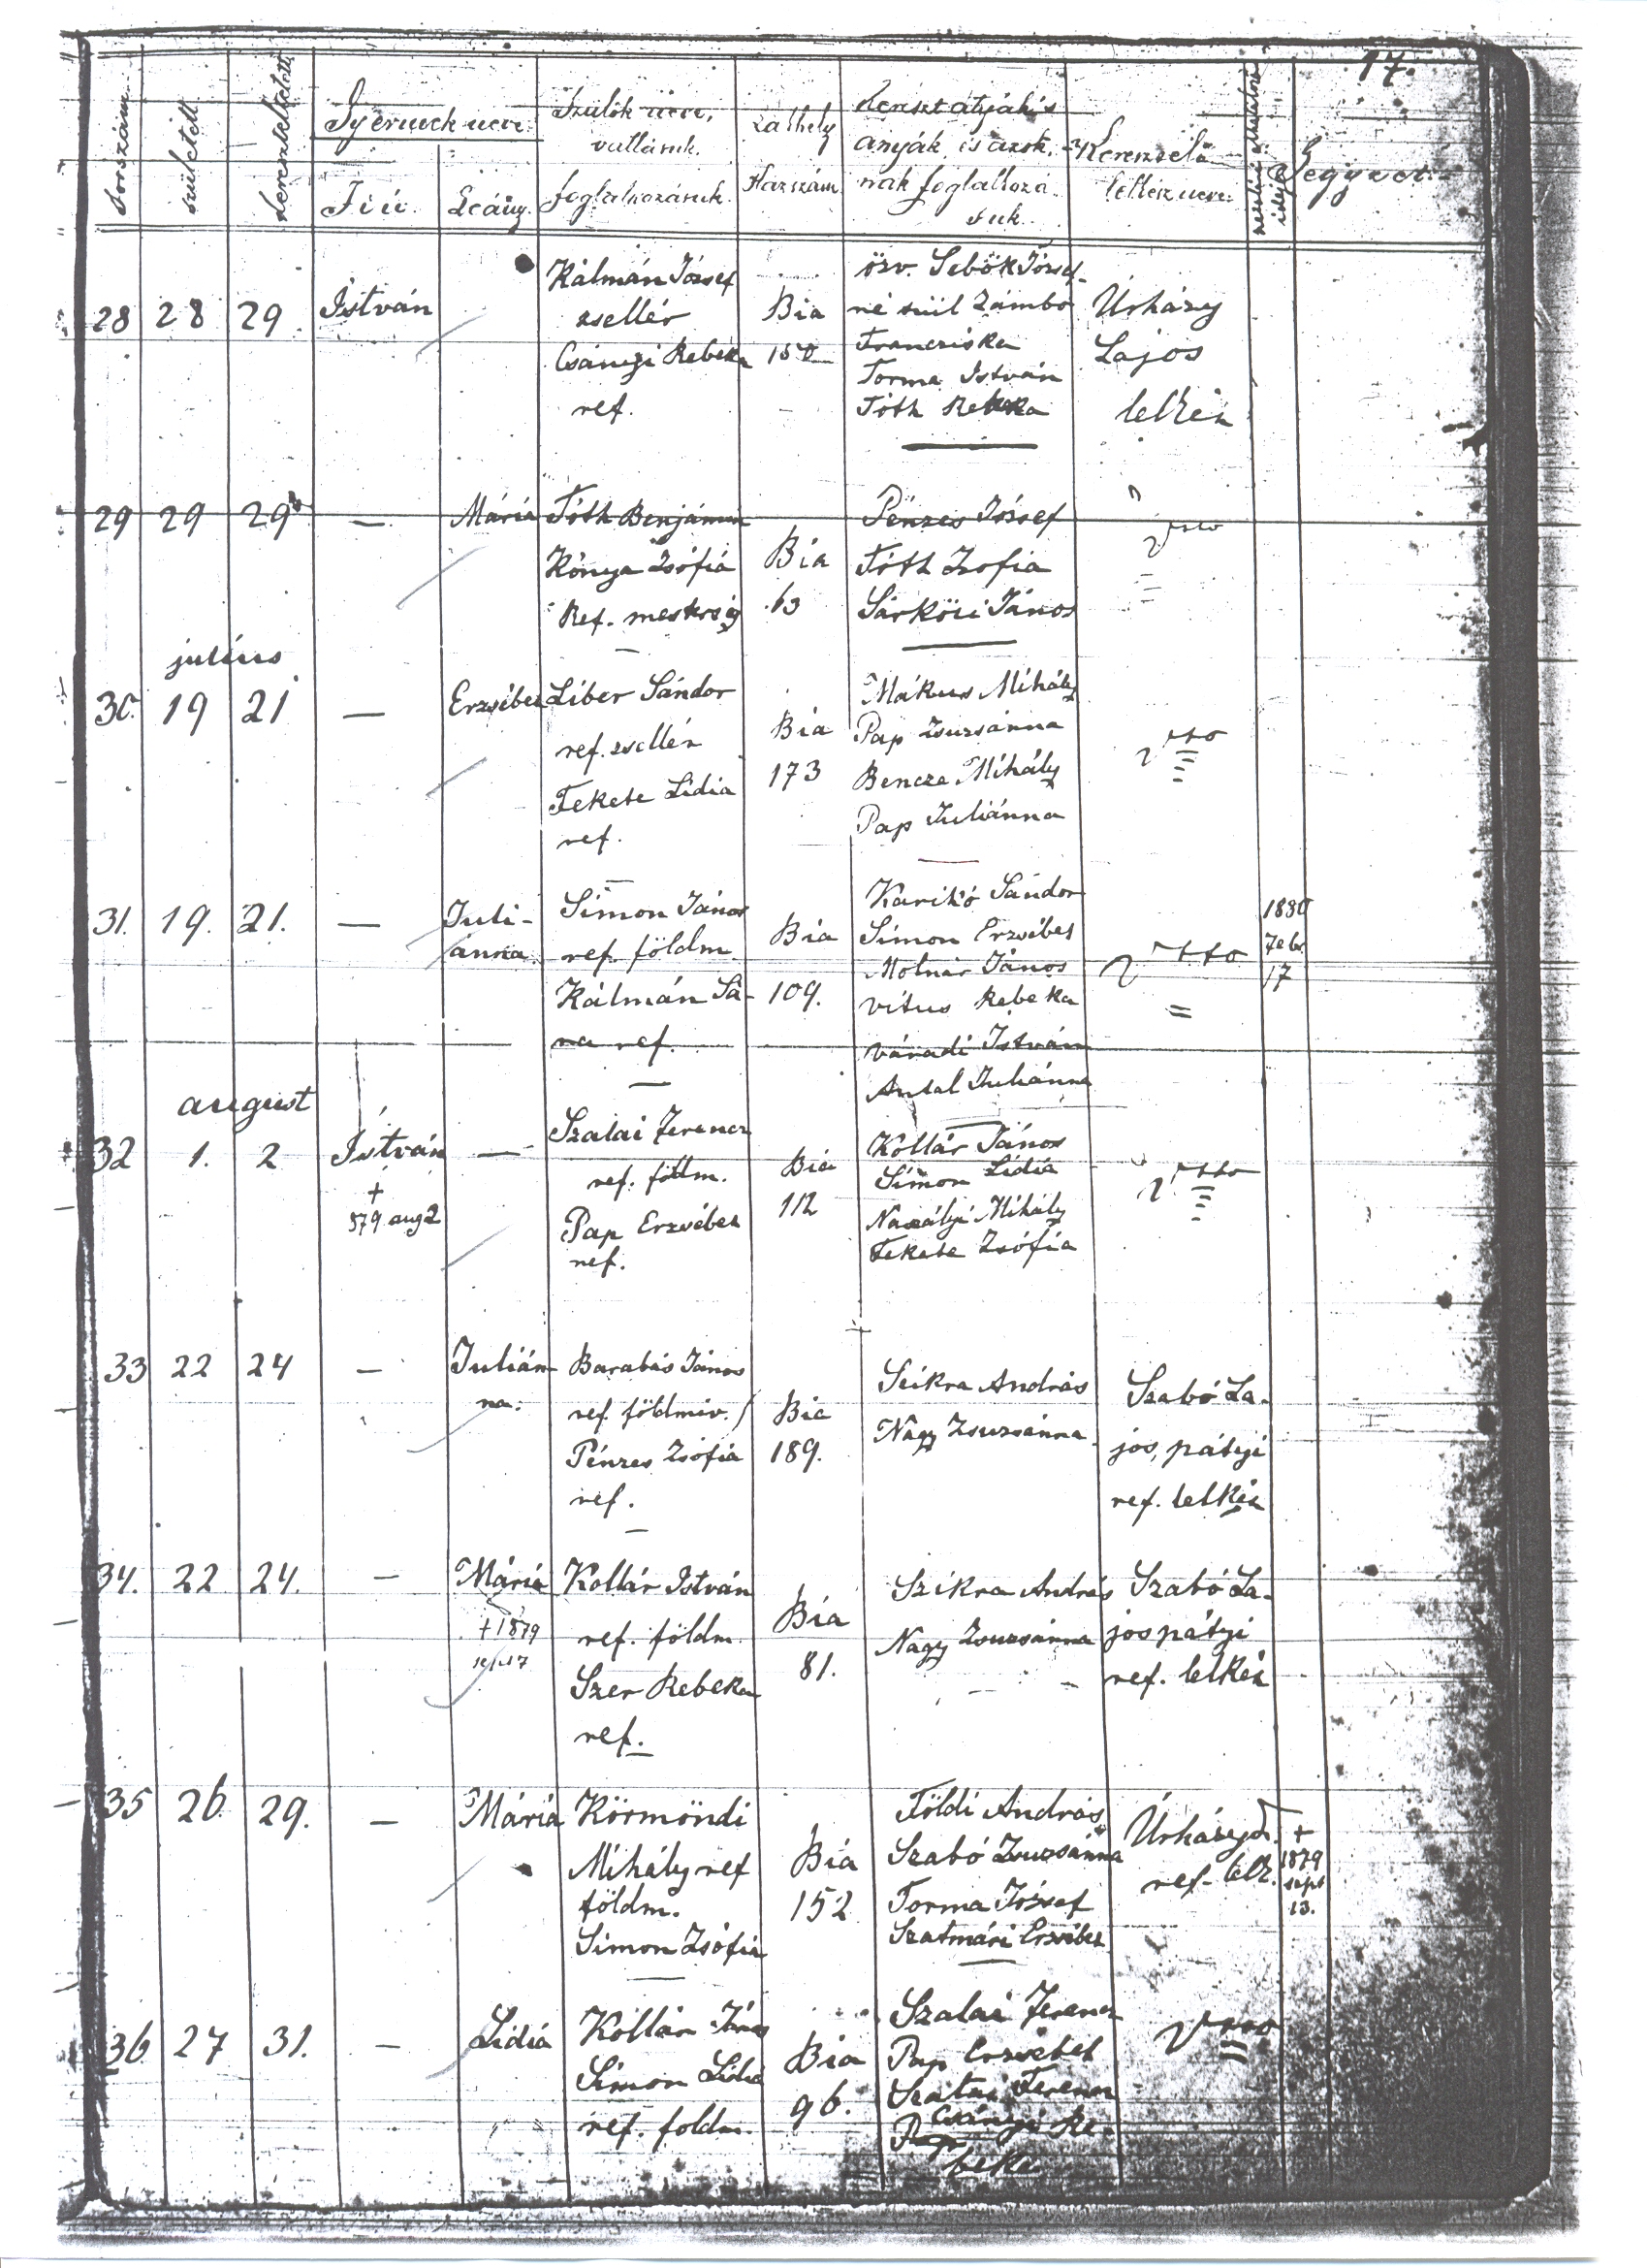 17.
Sorszám
született
kereszteltetett
Gyermek neve
Fiú.
Leány.
Szülők neve,
vallásuk.
foglalkozásuk.
Lakhely
Házszám
Kereszt atyák és
anyák, és azok-
nak foglalkozá
suk.
Keresztelő
lelkész neve.
Jegyzet.
28 28 29 István
Kálmán József
zsellér
Csányi Rebeka
ref.
Bia
özv. Sebök József-
né szül Zámbó
Francziska
Torma István
Tóth Rebeka
Úrházy
Lajos
lelkész
29 29 29 — Mária
Tóth Benjámin
Kónya Zsófia
Ref. mesterség
Bia
63
Pénzes József
Tóth Zsofia
Sárközi János
julius
30. 19 21 — Erzsébet
Liber Sándor
ref. zsellér
Fekete Lidia
ref.
Bia
173
Mákus Mihály
Pap Zsuzsánna
Bencze Mihály
Pap Juliánna
31. 19. 21. — Juli-
anna.
Simon János
ref. földm.
Kálmán Sá-
ra ref.
Bia
109.
Karikó Sándor
Simon Erzsébet
Molnár János
Vitus Rebeka
Váradi István
Antal Juliánna
1880
Febr
17
august
32 1. 2 István —
+
879 aug 2
Szalai Ferencz
ref. földm.
Pap Erzsébet
ref.
Bia
112
Kollár János
Simon Lidia
Naszályi Mihály
Fekete Zsófia
33 22 24 — Julián
na.
Barabás János
ref. földmiv.
Pénzes Zsófia
ref.
Bia
189.
Szikra András
Nagy Zsuzsánna
Szabó La-
jos, pátyi
ref. lelkész
34. 22 24. — Mária
+ 1879
sept 17
Kollár István
ref. földm.
Szer Rebeka
ref.
Bia
81.
Szikra András
Nagy Zsuzsánna
Szabó La-
jos pátyi
ref. lelkész
35 26 29. — Mária
Körmöndi
Mihály ref
földm.
Simon Zsófia
Bia
152
Földi András
Szabó Zsuzsánna
Torma József
Szatmári Erzsébet
Úrházy
ref. lelk.
+
1879
sept
13.
36 27 31. — Lidiá
Kollár János
Simon Lidia
ref. földm.
Bia
96.
Szalai Ferencz
Pap Erzsébet
Szatai Ferencz
Pap Csányi Re-
beka